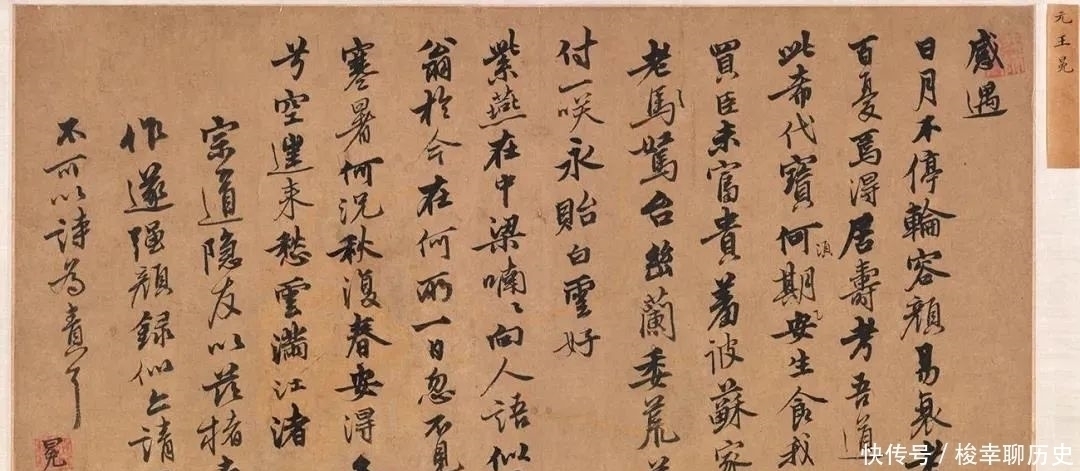 元王冕
感遇
日月不停輪容顔易衰
百憂焉得居壽考吾道
此希代寶何須期安生食我
買臣未富貴被蘇家
老馬駑台幽蘭委荒
付一咲永貽白雲好
紫燕在中梁喃〻向人語似
翁於今在何所一日忽不見
寒暑何況秋復春安得
空来愁雲滿江渚
宗道隐友以茲楮
作遂强顔録似上請
不可以詩為責
冕
快传号/梭幸聊历史